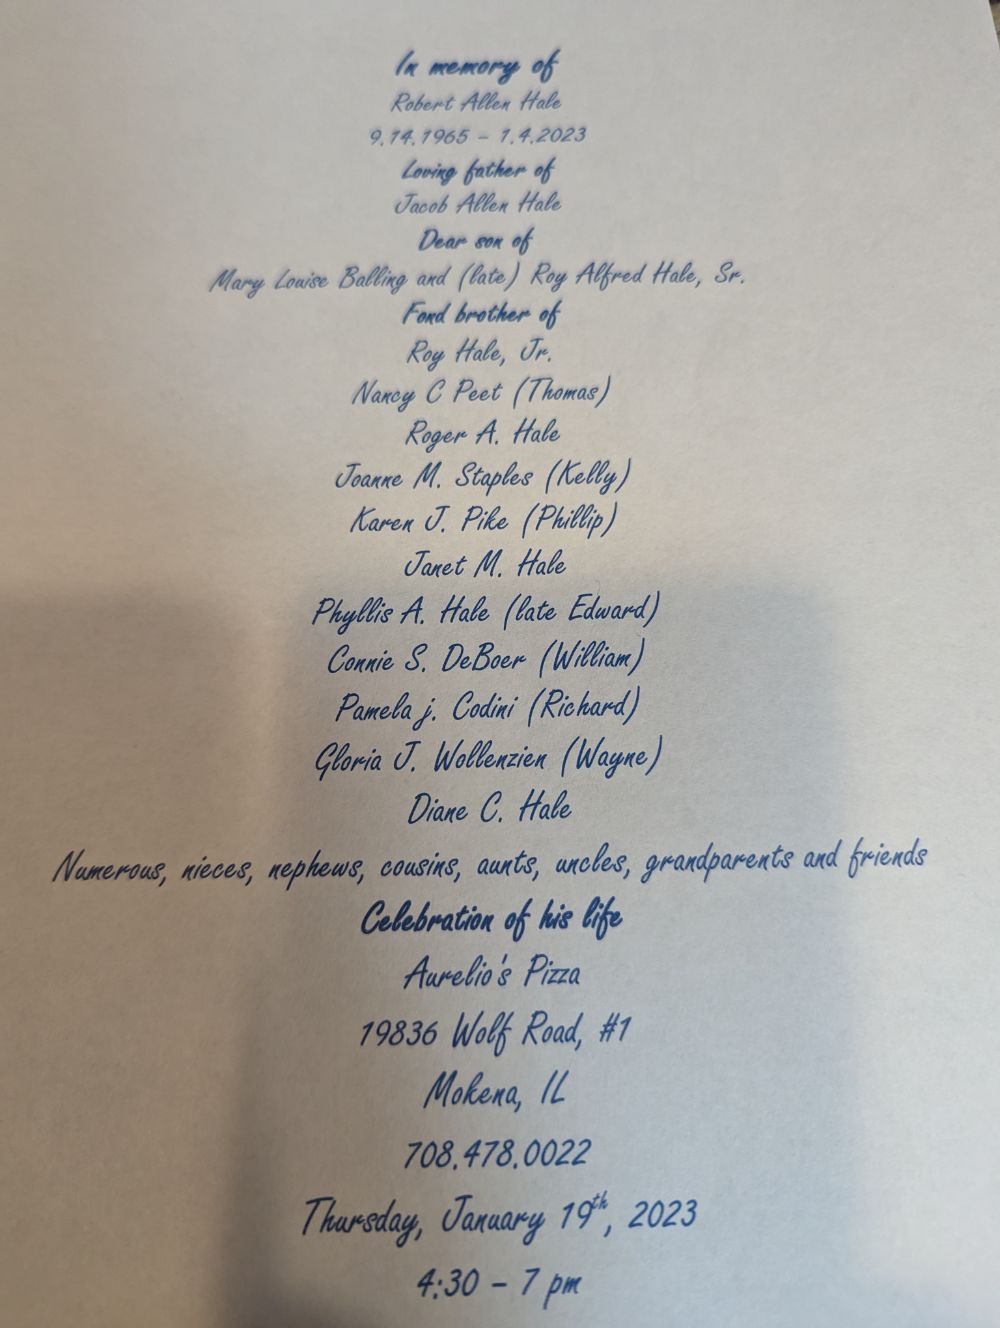 In memory of
Robert Allen Hale
9.14.1965 – 1.4.2023
Loving father of
Jacob Allen Hale
Dear son of
Mary Louise Balling and (late) Roy Alfred Hale, Sr.
Fond brother of
Roy Hale, Jr.
Nancy C Peet (Thomas)
Roger A. Hale
Joanne M. Staples (Kelly)
Karen J. Pike (Phillip)
Janet M. Hale
Phyllis A. Hale (late Edward)
Connie S. DeBoer (William)
Pamela j. Codini (Richard)
Gloria J. Wollenzien (Wayne)
Diane C. Hale
Numerous, nieces, nephews, cousins, aunts, uncles, grandparents and friends
Celebration of his life
Aurelio's Pizza
19836 Wolf Road, #1
Mokena, IL
708.478.0022
Thursday, January 19th, 2023
4:30 – 7 pm